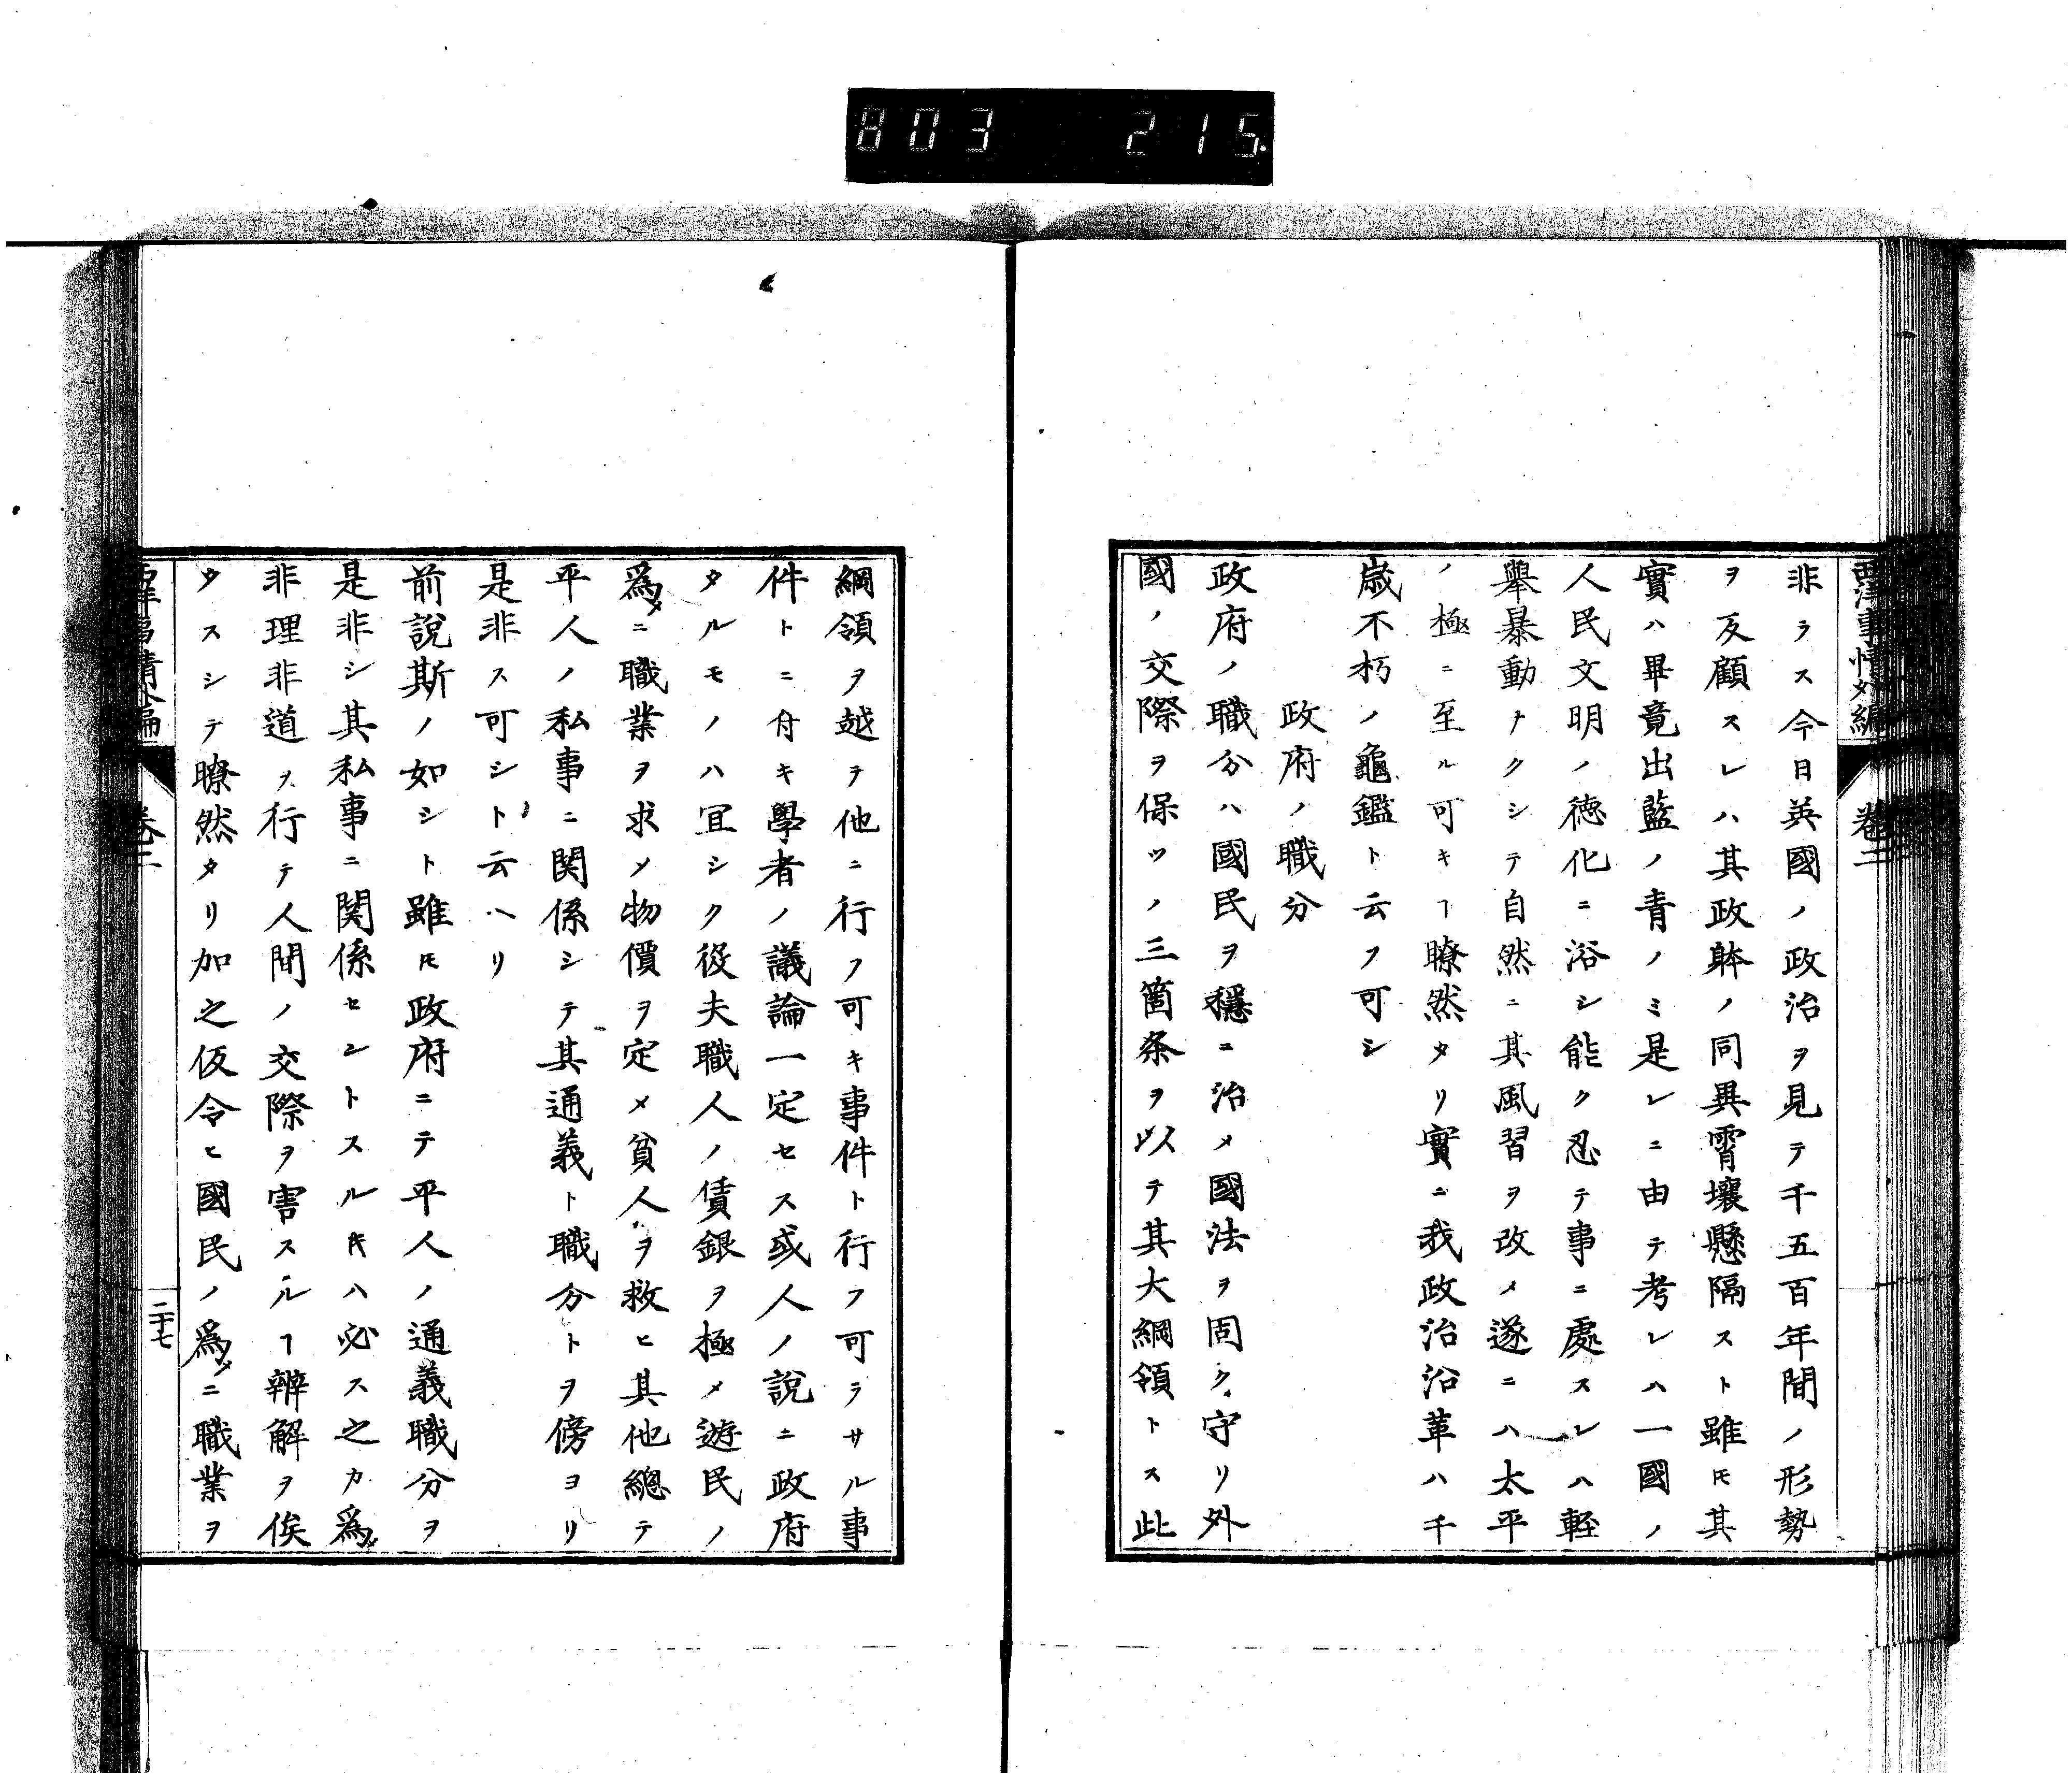 803 215.
非ラス今日英國ノ政治ヲ見テ千五百年間ノ形勢
ヲ反顧スレハ其政躰ノ同異霄壤懸隔スト雖𪜈其
實ハ畢竟出藍ノ青ノミ是レニ由テ考レハ一國ノ
人民文明ノ德化ニ浴シ能ク忍テ事ニ處スレハ輕
舉暴動ナクシテ自然ニ其風習ヲ改メ遂ニハ太平
ノ極ニ至ル可キヿ瞭然タリ實ニ我政治沿革ハ千
歳不朽ノ龜鑑ト云フ可シ
政府ノ職分
政府ノ職分ハ國民ヲ穩ニ治メ國法ヲ固ク守リ外
國ノ交際ヲ保ツノ三箇条ヲ以テ其大綱領トス此
綱領ヲ越テ他ニ行フ可キ事件ト行フ可ラサル事
件トニ付キ學者ノ議論一定セス或人ノ説ニ政府
タルモノハ宜シク役夫職人ノ賃銀ヲ極メ遊民ノ
爲メニ職業ヲ求メ物價ヲ定メ貧人ヲ救ヒ其他總テ
平人ノ私事ニ関係シテ其通義ト職分トヲ傍ヨリ
是非ス可シト云ヘリ
前説斯ノ如シト雖𪜈政府ニテ平人ノ通義職分ヲ
是非シ其私事ニ関係セントスル𪜈ハ必ス之カ爲メ
非理非道ヲ行テ人間ノ交際ヲ害スルヿ辨解ヲ俟
タスシテ瞭然タリ加之仮令ヒ國民ノ爲メニ職業ヲ
二十七